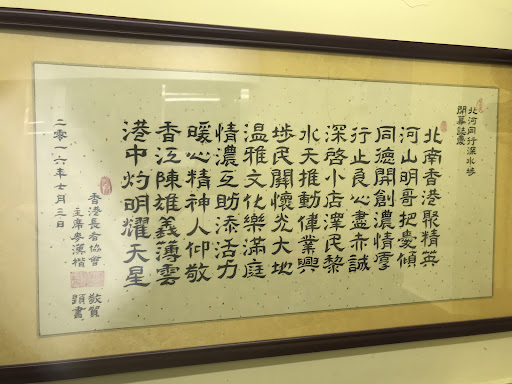 北河同行深水埗
開幕誌慶
北南香港聚精英
河山明哥把慶傾
同德開創濃情享
行止良心盡赤誠
深啓小店澤民黎
水天推動偉業興
埗民關懷光大地
温雅文化樂滿庭
情濃互助添活力
暖心精神人仰敬
香江陳雄義薄雲
港中灼明耀天星
香港長者協會 敬賀
主席麥漢楷 題書
二零一六年七月三日